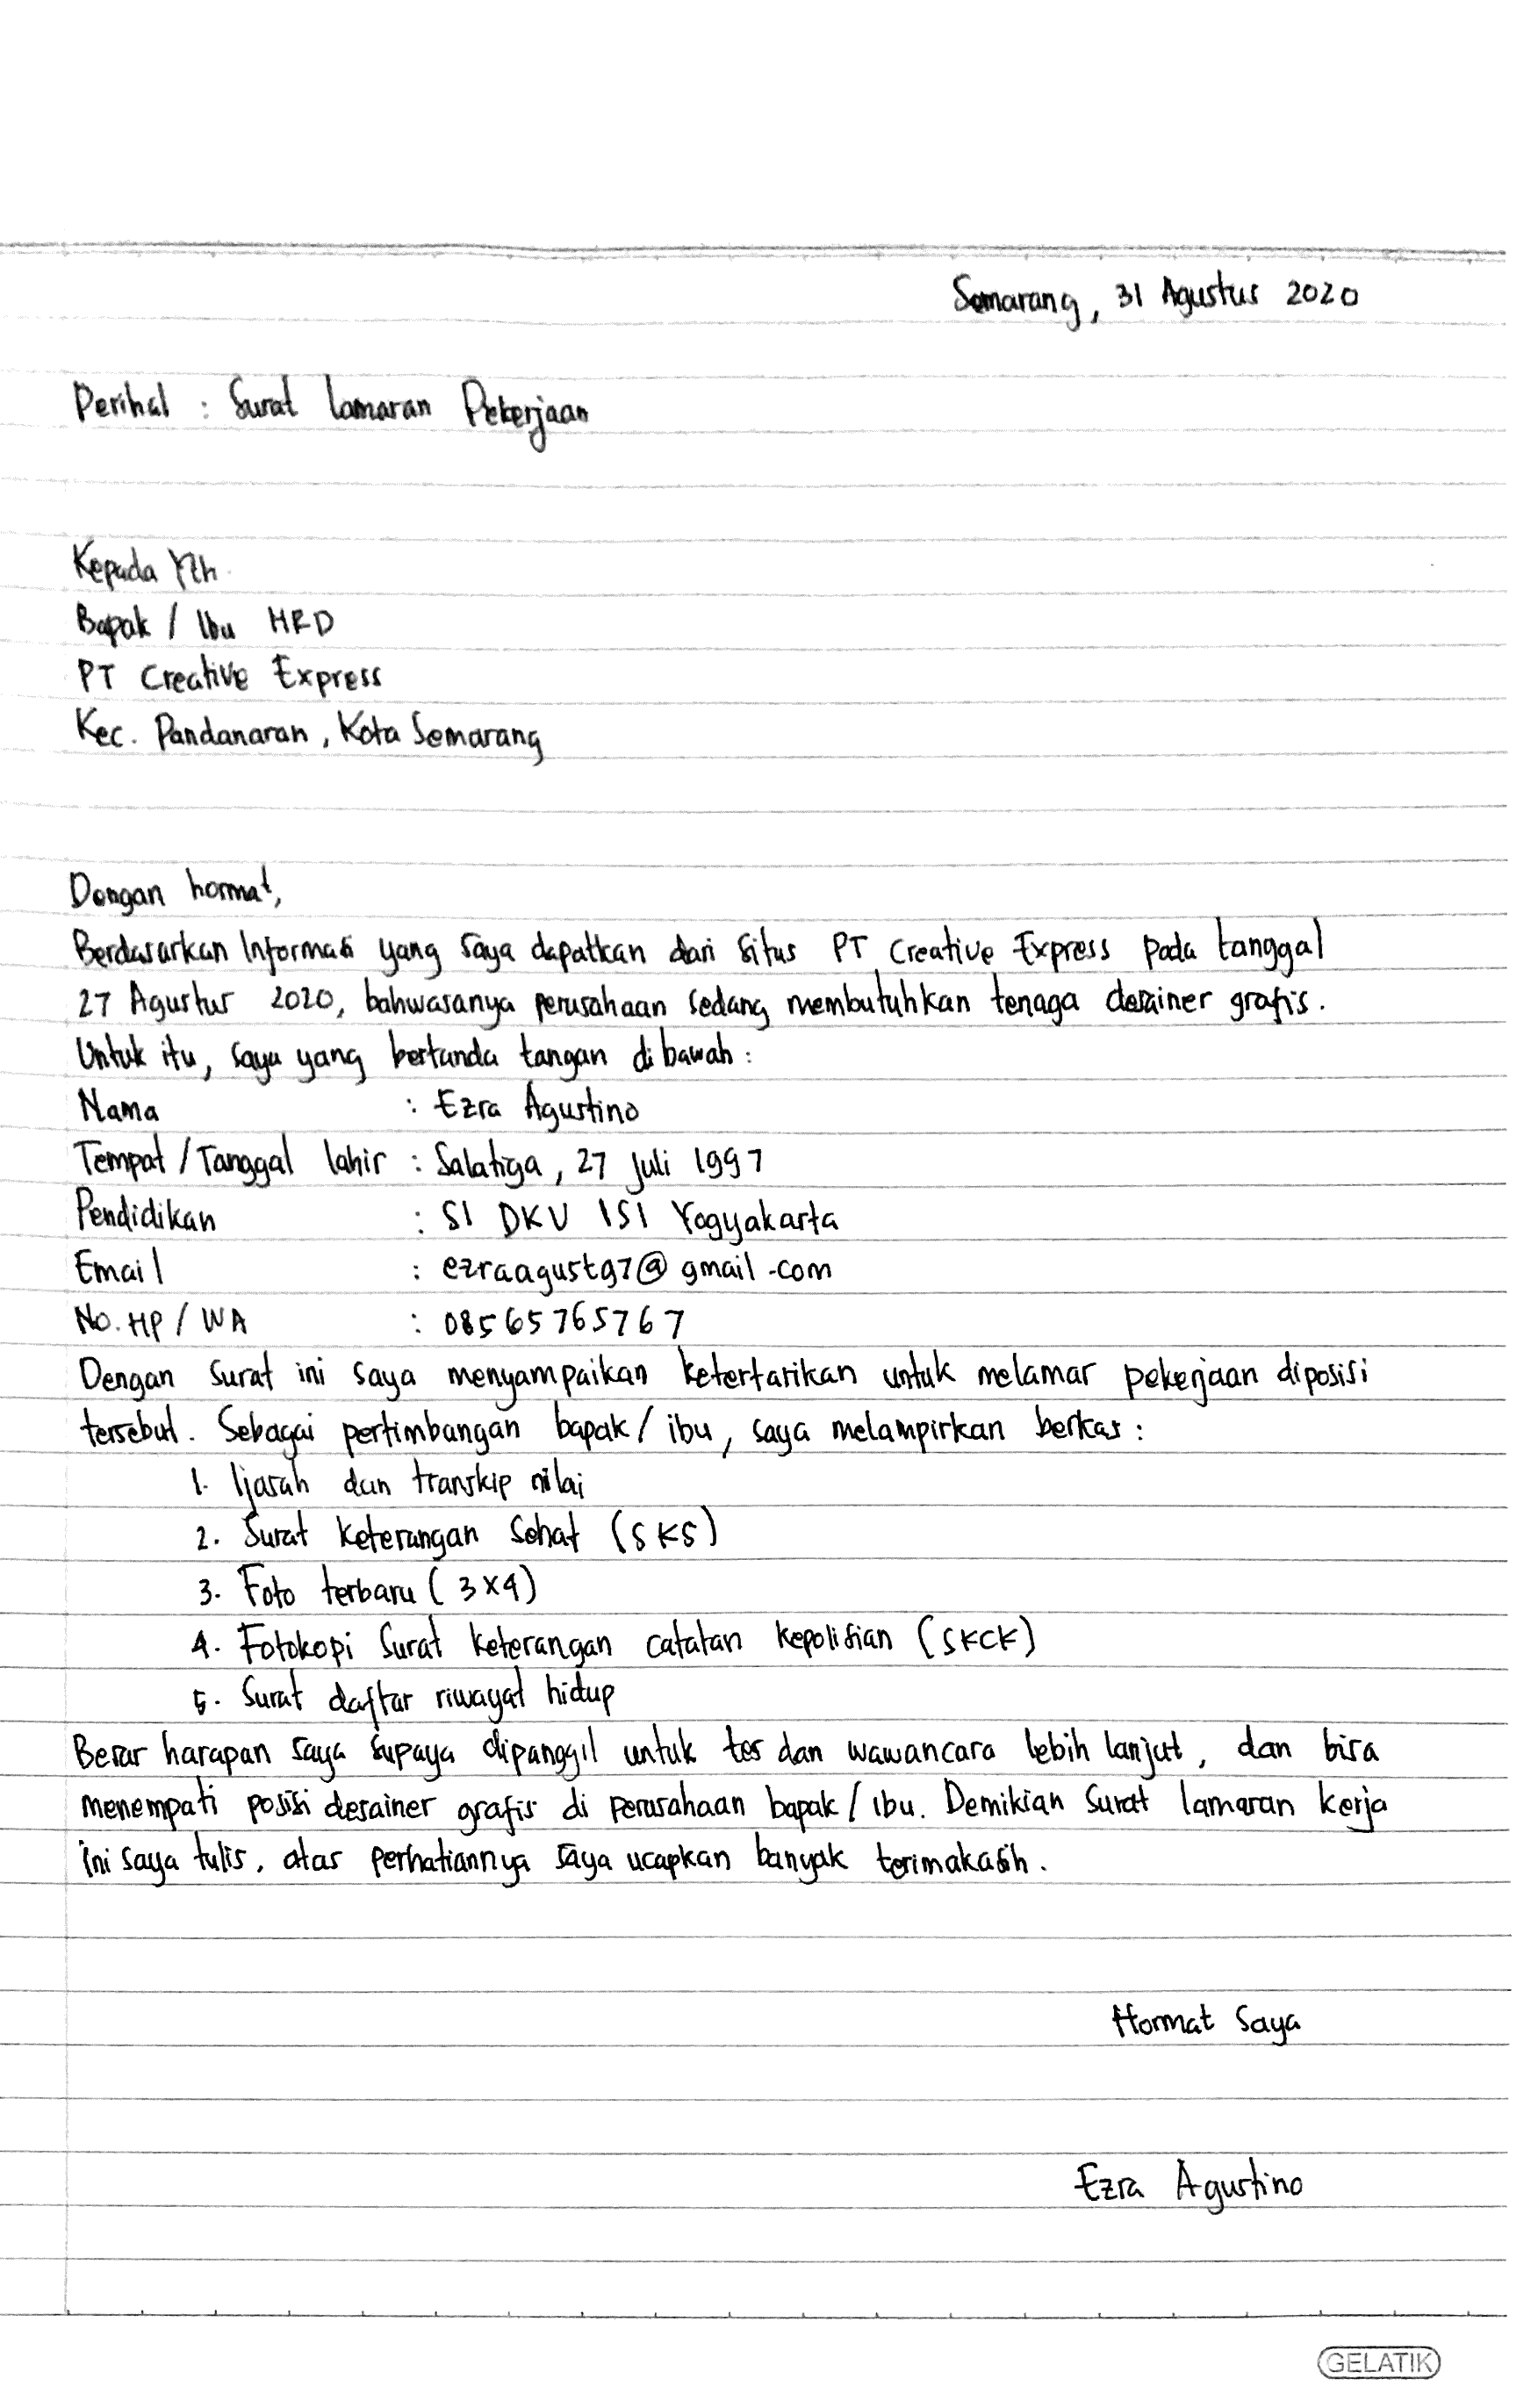 Semarang, 31 Agustus 2020
Perihal : Surat lamaran Pekerjaan
Kepada Yth.
Bapak / Ibu HRD
PT Creative Express
Kec. Pandanaran, Kota Semarang
Dengan hormat,
Berdasarkan Informasi yang saya dapatkan dari situs PT Creative Express pada tanggal
27 Agustus 2020, bahwasanya perusahaan sedang membutuhkan tenaga desainer grafis.
Untuk itu, saya yang bertanda tangan dibawah :
Nama : Ezra Agustino
Tempat / Tanggal lahir : Salatiga, 27 Juli 1997
Pendidikan : S1 DKV ISI Yogyakarta
Email : ezraagust97@gmail.com
No. HP / WA : 08565765767
Dengan surat ini saya menyampaikan ketertarikan untuk melamar pekerjaan diposisi
tersebut. Sebagai pertimbangan bapak / ibu, saya melampirkan berkas :
1. Ijasah dan transkip nilai
2. Surat keterangan sehat (SKS)
3. Foto terbaru (3x4)
4. Fotokopi surat keterangan catatan kepolisian (SKCK)
5. Surat daftar riwayat hidup
Besar harapan saya supaya dipanggil untuk tes dan wawancara lebih lanjut, dan bisa
menempati posisi desainer grafis di perusahaan bapak / ibu. Demikian surat lamaran kerja
ini saya tulis, atas perhatiannya saya ucapkan banyak terimakasih.
Hormat Saya
Ezra Agustino
GELATIK